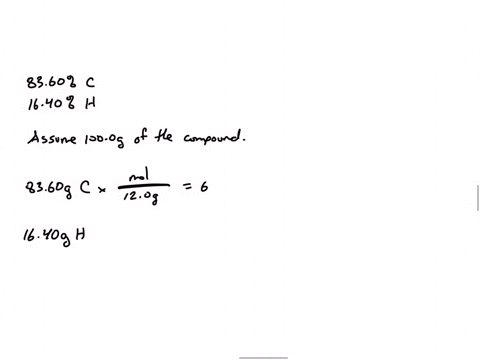 83.60% C
16.40% H
Assume 100.0g of the compound.
83.60g C × mol/12.0g = 6
16.40g H